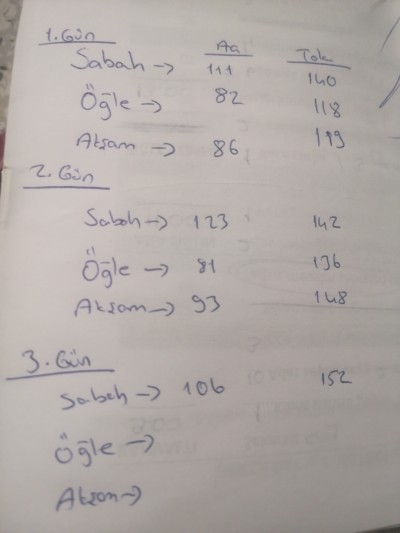 1. Gün Aç Tok
Sabah → 111 140
Öğle → 82 118
Akşam → 86 119
2. Gün
Sabah → 123 142
Öğle → 81 136
Akşam → 93 148
3. Gün
Sabah → 106 152
Öğle →
Akşam →